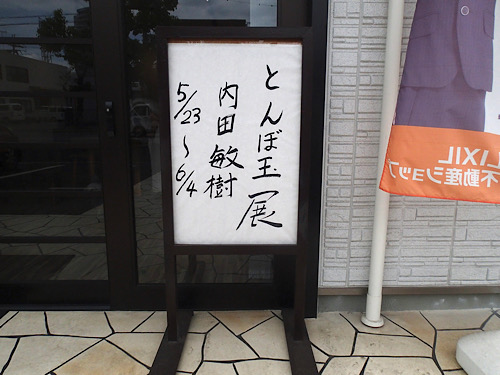 とんぼ玉展
内田敏樹
5/23〜6/4
LIXIL
不動産ショップ